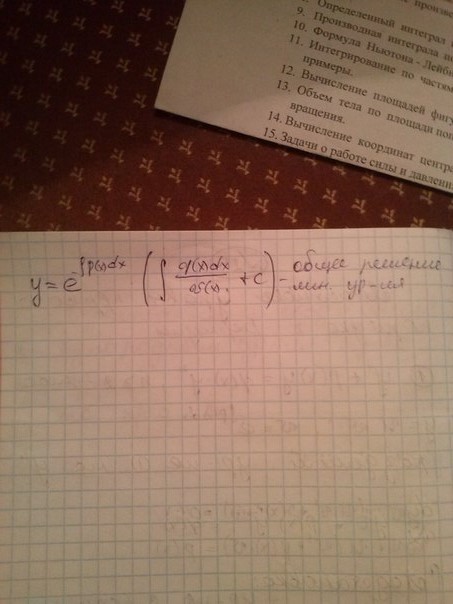 9. Производная интеграла по
10. Формула Ньютона - Лейбн
11. Интегрирование по частям
примеры.
12. Вычисление площадей фигу
13. Объем тела по площади поп
вращения.
14. Вычисление координат центра
15. Задачи о работе силы и давлени
y = e^{-∫p(x)dx} (∫ q(x)dx / ω(x) + c) - общее решение
лин. ур-ия